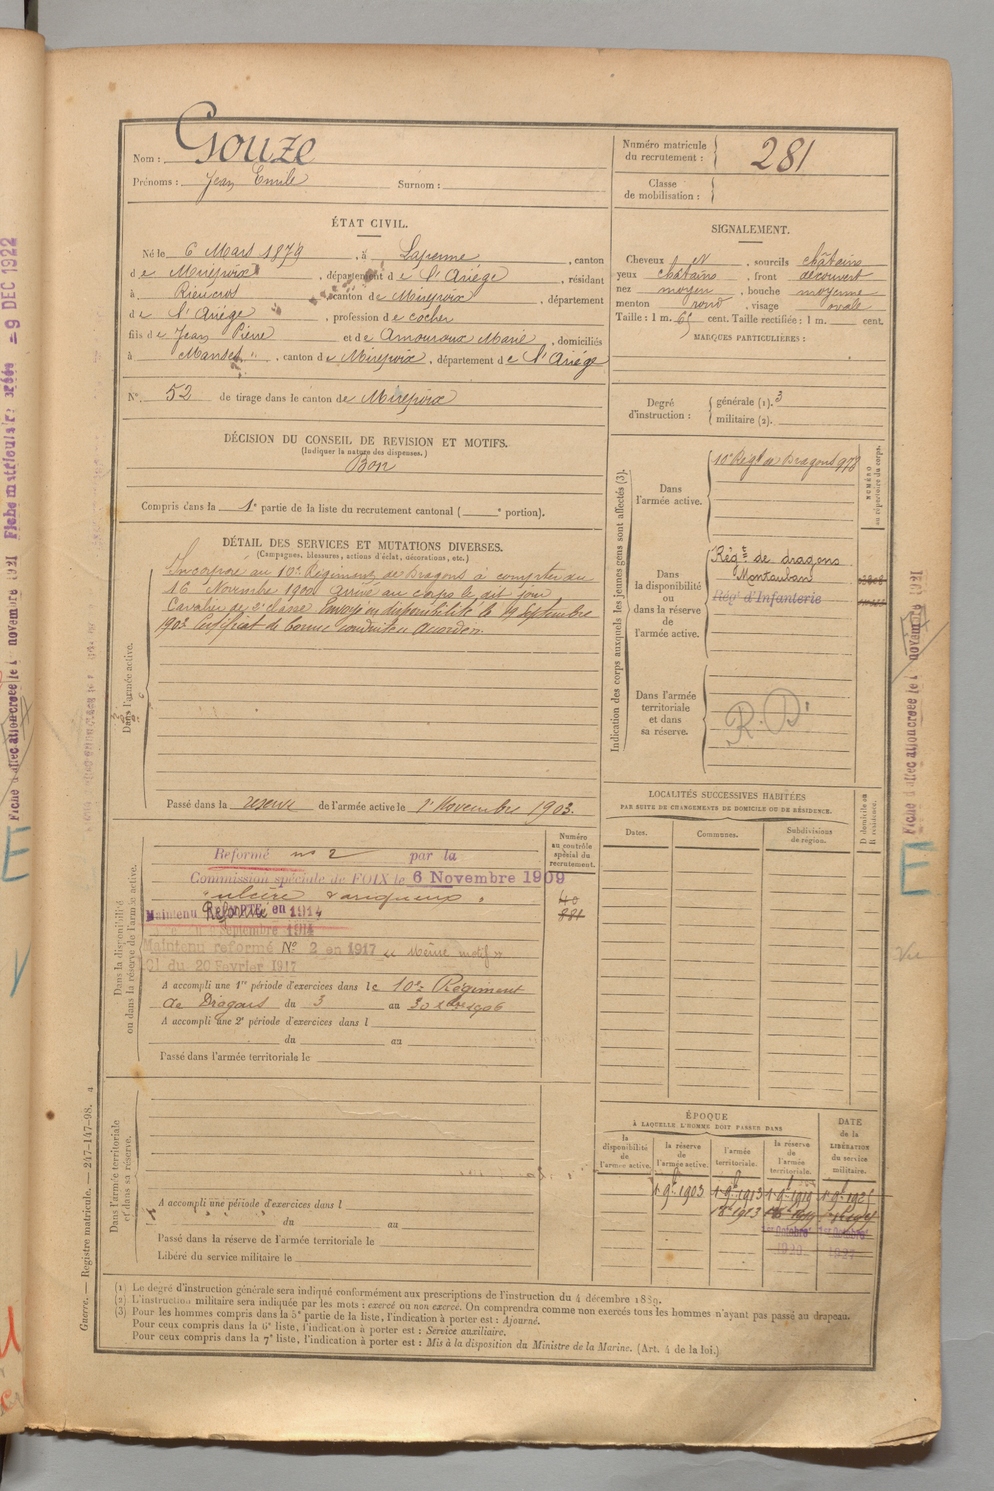 Nom : Gouze
Prénoms : Jean Emile Surnom :
Numéro matricule du recrutement : 281
Classe de mobilisation :
ÉTAT CIVIL.
Né le 6 Mars 1879, à Lapenne, canton
de Mirepoix, département de l'Ariège, résidant
à Rieucros, canton de Mirepoix, département
de l'Ariège, profession de cocher
fils de Jean Pierre et de Amouroux Marie, domiciliés
à Manses, canton de Mirepoix, département de l'Ariège
N° 52 de tirage dans le canton de Mirepoix
SIGNALEMENT.
Cheveux et N, sourcils châtains
yeux châtains, front découvert
nez moyen, bouche moyenne
menton rond, visage ovale
Taille : 1 m. 65 cent. Taille rectifiée : 1 m. cent.
MARQUES PARTICULIÈRES :
Degré d'instruction : générale (1). 3
militaire (2).
DÉCISION DU CONSEIL DE REVISION ET MOTIFS.
(Indiquer la nature des dispenses.)
Bon
Compris dans la 1e partie de la liste du recrutement cantonal ( e portion).
DÉTAIL DES SERVICES ET MUTATIONS DIVERSES.
(Campagnes, blessures, actions d'éclat, décorations, etc.)
Dans l'armée active.
Incorporé au 10e Régiment de Dragons à compter du
16 Novembre 1900 arrivé au corps le dit jour
Cavalier de 2e classe. Envoyé en disponibilité le 19 Septembre
1903 Certificat de bonne conduite accordé.
Passé dans la reserve de l'armée active le 1er Novembre 1903.
Indication des corps auxquels les jeunes gens sont affectés (3).
NUMÉRO au répertoire du corps.
Dans l'armée active.
10e Régt de Dragons 978
Dans la disponibilité ou dans la réserve de l'armée active.
Régt de dragons
Montauban
Régt d'Infanterie
Dans l'armée territoriale et dans sa réserve.
R.D
Dans la disponibilité ou dans la réserve de l'armée active.
Numéro au contrôle spécial du recrutement.
Reformé n° 2 par la
Commission spéciale de FOIX le 6 Novembre 1909
Maintenu Réformé en 1914
Septembre 1914
Maintenu reformé N° 2 en 1917 « Même motif »
du 20 Février 1917
A accompli une 1re période d'exercices dans le 10e Régiment
de Dragons du 3 au 30 1906
A accompli une 2e période d'exercices dans l
du au
Passé dans l'armée territoriale le
LOCALITÉS SUCCESSIVES HABITÉES
PAR SUITE DE CHANGEMENTS DE DOMICILE OU DE RÉSIDENCE.
Dates. Communes. Subdivisions de région. D domicile ou R résidence.
Dans l'armée territoriale et dans sa réserve.
A accompli une période d'exercices dans l
du au
Passé dans la réserve de l'armée territoriale le
Libéré du service militaire le
ÉPOQUE
À LAQUELLE L'HOMME DOIT PASSER DANS
la disponibilité de l'armée active. la réserve de l'armée active. l'armée territoriale. la réserve de l'armée territoriale. DATE de la LIBÉRATION du service militaire.
1 9bre 1903 1 9bre 1913 1 9bre 1919 1 9bre 1925
(1) Le degré d'instruction générale sera indiqué conformément aux prescriptions de l'instruction du 4 décembre 1889.
(2) L'instruction militaire sera indiquée par les mots : exercé ou non exercé. On comprendra comme non exercés tous les hommes n'ayant pas passé au drapeau.
(3) Pour les hommes compris dans la 5e partie de la liste, l'indication à porter est : Ajourné.
Pour ceux compris dans la 6e liste, l'indication à porter est : Service auxiliaire.
Pour ceux compris dans la 7e liste, l'indication à porter est : Mis à la disposition du Ministre de la Marine. (Art. 4 de la loi.)
Guerre. — Registre matricule. — 247-147-98.
Fiche matriculaire créée - 9 DEC 1922
Fiche d'affectation créée le 1 novembre 1921
Fiche d'affectation créée le 1 novembre 1921
E
E
Vu